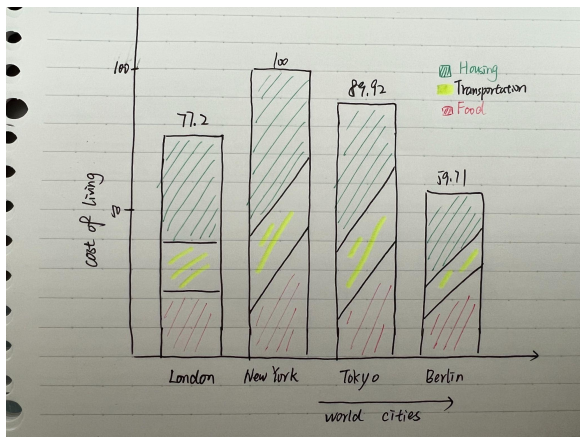 100
50
cost of living
77.2
100
89.92
59.71
Housing
Transportation
Food
London
New York
Tokyo
Berlin
world cities